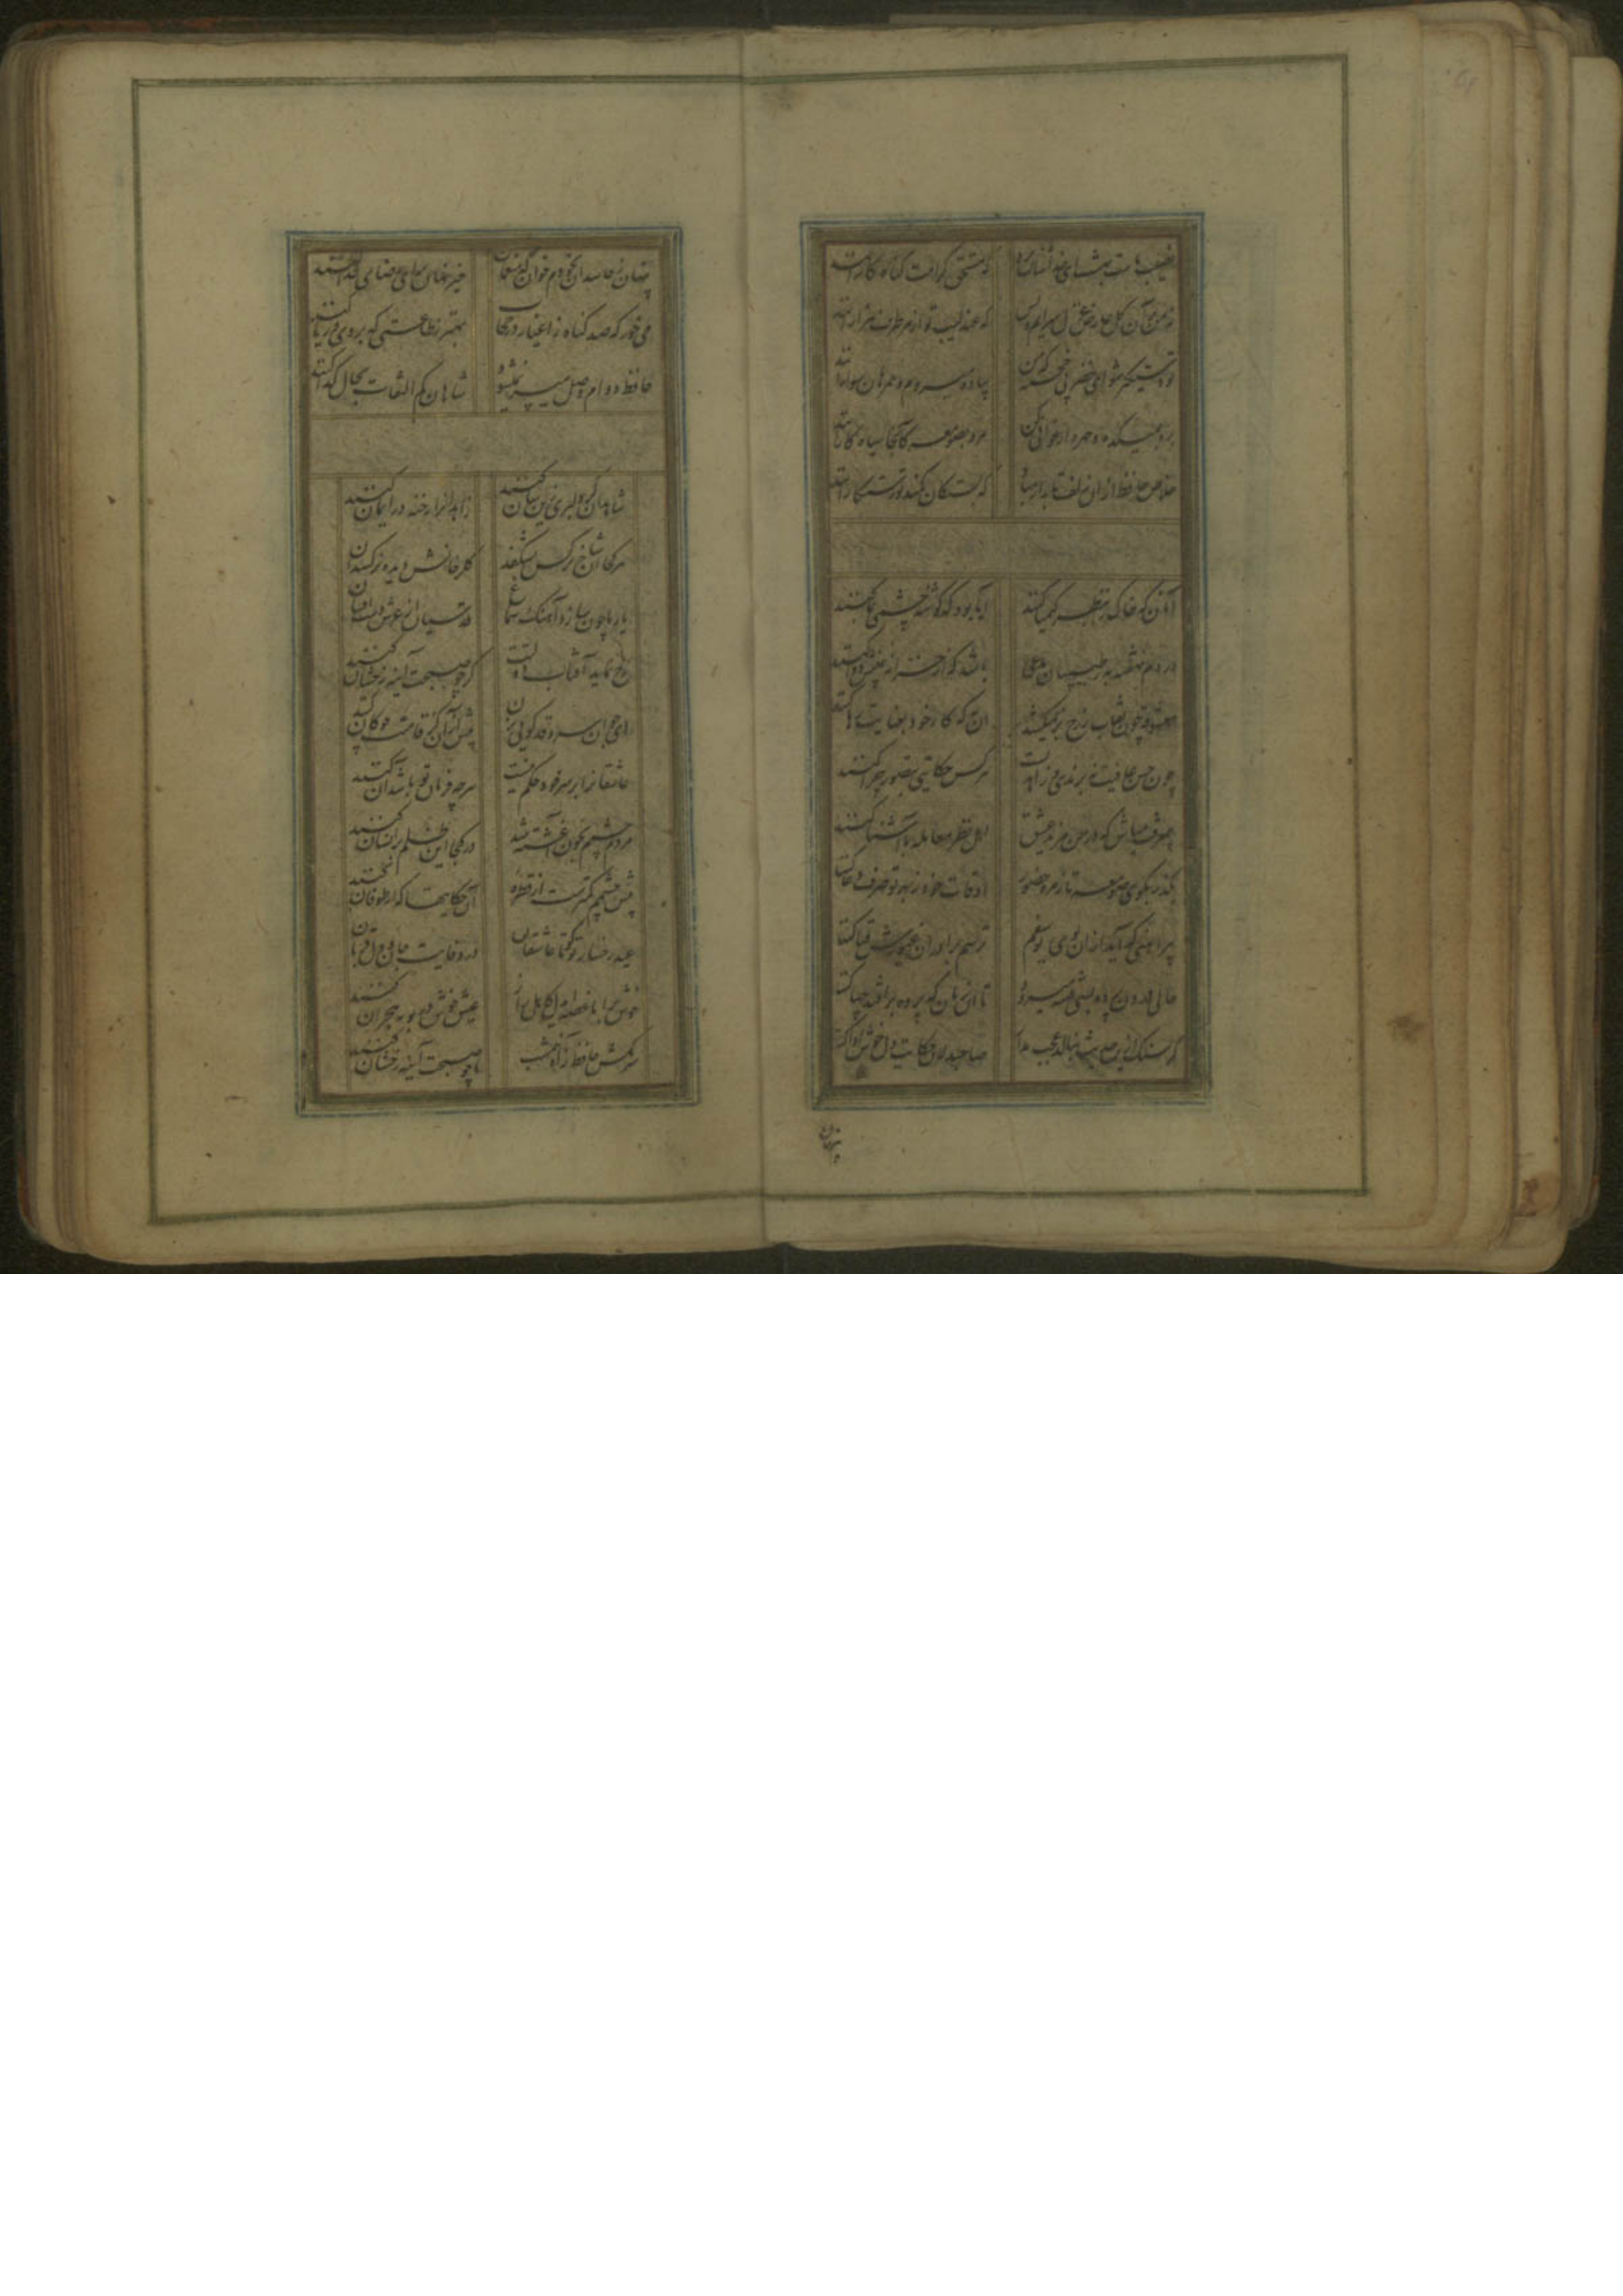 نصیب ماست بهشت ای خداشناس برو
که مستحق کرامت گناه کارانند
نه من بر آن گل عارض غزل سرایم و بس
که عندلیب تو از هر طرف هزارانند
تو دستگیر شو ای خضر پی خجسته که من
پیاده میروم و همرهان سوارانند
برو بمیکده و چهره ارغوانی کن
مرو بصومعه کانجا سیاه کارانند
خلاص حافظ از ان زلف تابدار مباد
که بستگان کمند تو رستگارانند
آنان که خاک را بنظر کیمیا کنند
آیا بود که گوشه چشمی بما کنند
دردم نهفته به ز طبیبان مدعی
باشد که از خزانه غیبش دوا کنند
معشوقه چون نقاب ز رخ بر نمیکشد
چون حسن عاقبت نه برندی و زاهدیست
بی معرفت مباش که در من یزید عشق
اهل نظر معامله با آشنا کنند
بگذر بکوی میکده تا زمره حضور
اوقات خود ز بهر تو صرف دعا کنند
پیراهنی که آید ازان بوی یوسفم
ترسم برادران غیورش قبا کنند
حالی درون پرده بسی فتنه میرود
تا آن زمان که پرده برافتد چها کنند
گر سنگ ازین حدیث بنالد عجب مدار
صاحبدلان حکایت دل خوش ادا کنند
پنهان
پنهان ز حاسدان بخودم خوان که منعمان
خیر نهان برای رضای خدا کنند
می خور که صد گناه ز اغیار در حجاب
بهتر ز طاعتی که بروی و ریا کنند
حافظ دوام وصل میسر نمیشود
شاهان کم التفات بحال گدا کنند
شاهدان گر دلبری زین سان کنند
زاهدانرا رخنه در ایمان کنند
هر کجا آن شاخ نرگس بشکفد
گلرخانش دیده نرگسدان کنند
یار ما چون سازد آهنگ سماع
قدسیان از عرش دست افشان کنند
رخ نماید آفتاب دولتت
گر چو صبحت آینه رخشان کنند
ای جوان سرو قد گویی بزن
پیش از آن کز قامتت چوگان کنند
عاشقانرا بر سر خود حکم نیست
هر چه فرمان تو باشد آن کنند
مردم چشمم بخون آغشته شد
در کجا این ظلم بر انسان کنند
پیش چشمم کمترست از قطره
آن حکایتها که از طوفان کنند
عید رخسار تو کو تا عاشقان
در وفایت جان و دل قربان
خوش برا با غصه ای دل کاهل راز
عیش خوش در بوته هجران کنند
سر مکش حافظ ز آه نیم شب
تا چو صبحت آینه رخشان کنند